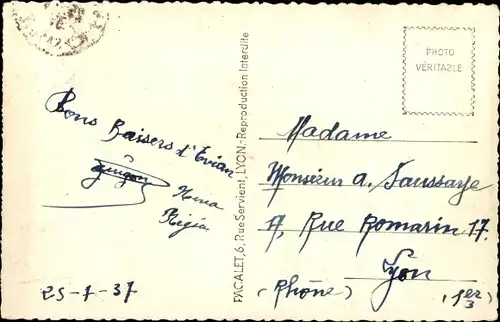 PHOTO
VÉRITABLE
Bons Baisers d'Evian
25-7-37
PACALET, 6, Rue Servient, LYON.-Reproduction Interdite
Madame
Monsieur a. Saussaye
17, Rue Romarin 17.
Lyon
(Rhône) (1er)